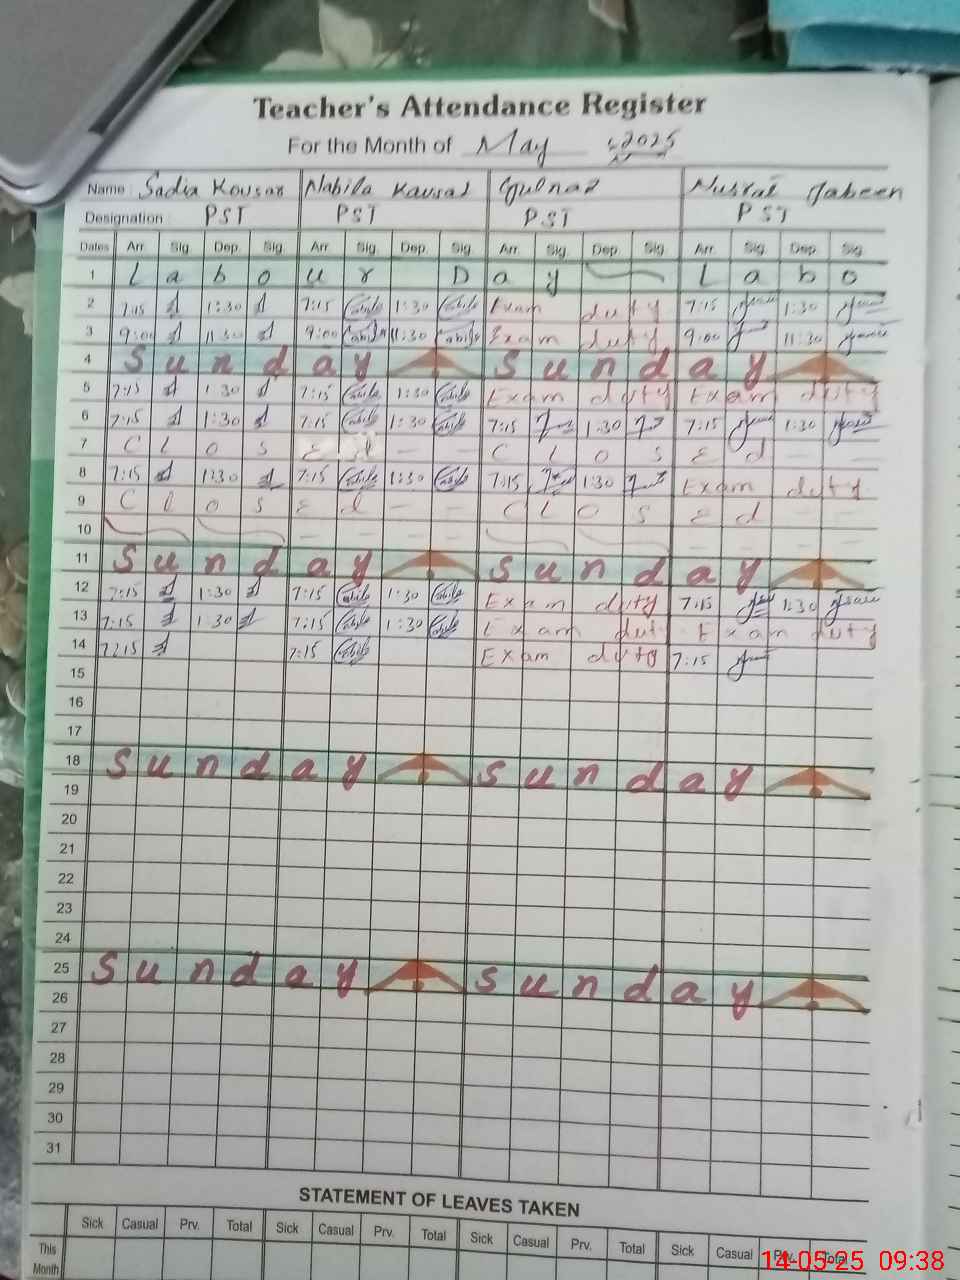 Teacher's Attendance Register
For the Month of May 2025
Name: Sadia Kousar Nabila Kausar Gulnaz Nusrat Jabeen
Designation: PST PST PST PST
Dates Arr. Sig. Dep. Sig. Arr. Sig. Dep. Sig. Arr. Sig. Dep. Sig. Arr. Sig. Dep. Sig.
1 L a b o u r D a y L a b o
2 7:15 1:30 7:15 1:30 Exam duty 7:15 1:30
3 9:00 11:30 9:00 11:30 Exam duty 9:00 11:30
4 S u n d a y S u n d a y
5 7:15 1:30 7:15 1:30 Exam duty Exam duty
6 7:15 1:30 7:15 1:30 7:15 1:30 7:15 1:30
7 C L O S E d - - C L O S E d - -
8 7:15 1:30 7:15 1:30 7:15 1:30 Exam duty
9 C l O S E d - - C L O S E d - -
10 - - - - - - - -
11 S u n d a y S u n d a y
12 7:15 1:30 7:15 1:30 Exam duty 7:15 1:30
13 7:15 1:30 7:15 1:30 Exam duty Exam duty
14 7:15 7:15 Exam duty 7:15
15
16
17
18 S u n d a y S u n d a y
19
20
21
22
23
24
25 S u n d a y S u n d a y
26
27
28
29
30
31
STATEMENT OF LEAVES TAKEN
Sick Casual Prv. Total Sick Casual Prv. Total Sick Casual Prv. Total Sick Casual Prv. Total
This Month
14-05-25 09:38